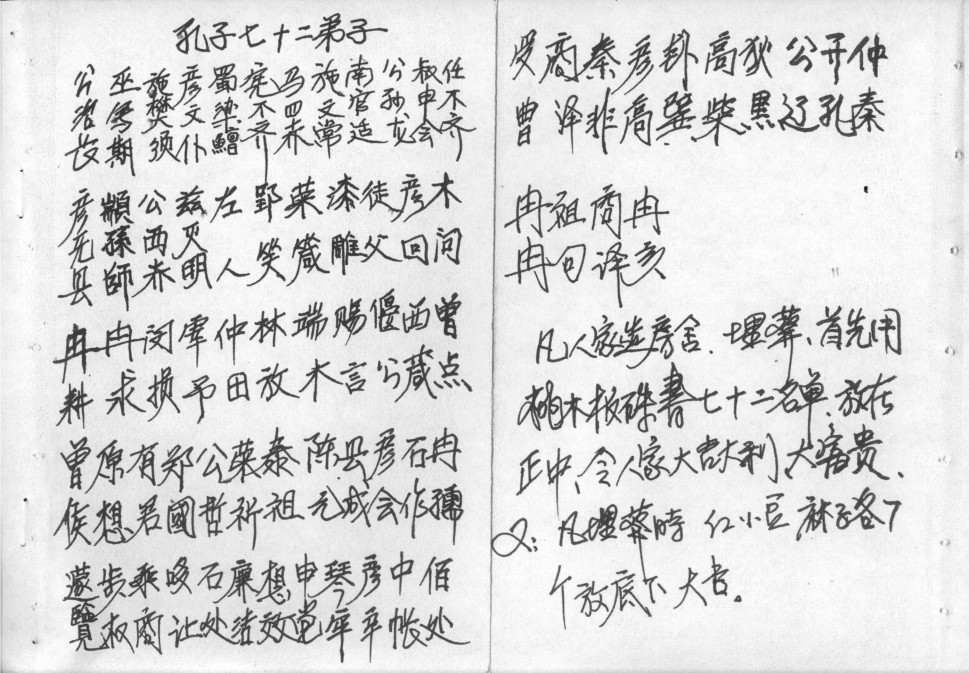 孔子七十二弟子
公 巫 施 彦 蜀 宪 马 施 南 公 叔 任
冶 马 樊 文 梁 不 四 之 官 孙 申 不
长 期 须 仆 鱣 齐 赤 常 适 龙 会 齐
彦 顓 公 兹 左 郢 葉 漆 徒 彦 木
无 孫 西 灭 人 笑 箴 雕 父 回 问
县 師 赤 明
冉 冉 闵 宰 仲 林 端 赐 偃 西 曾
耕 求 损 予 田 放 木 言 公 葴 点
曾 原 有 郑 公 葉 泰 陈 县 彦 石 冉
侯 想 若 國 哲 祈 祖 亢 成 会 作 孺
蘧 步 乘 石 廉 想 申 琴 彦 中 佰
覽 叔 商 让 处 结 效 党 牢 平 帐 处
商 秦 彦 卦 高 狄 公 开 仲
曾 泽 非 高 巽 柴 黑 辽 孔 秦
冉 祖 商 冉
冉 句 译 亥
凡人家造房舍、埋葬、首先用
桃木板硃書七十二名单、放在
正中、令人家大吉大利、大富贵、
又：凡埋葬時 红小豆 麻子各了
个放底下大吉。